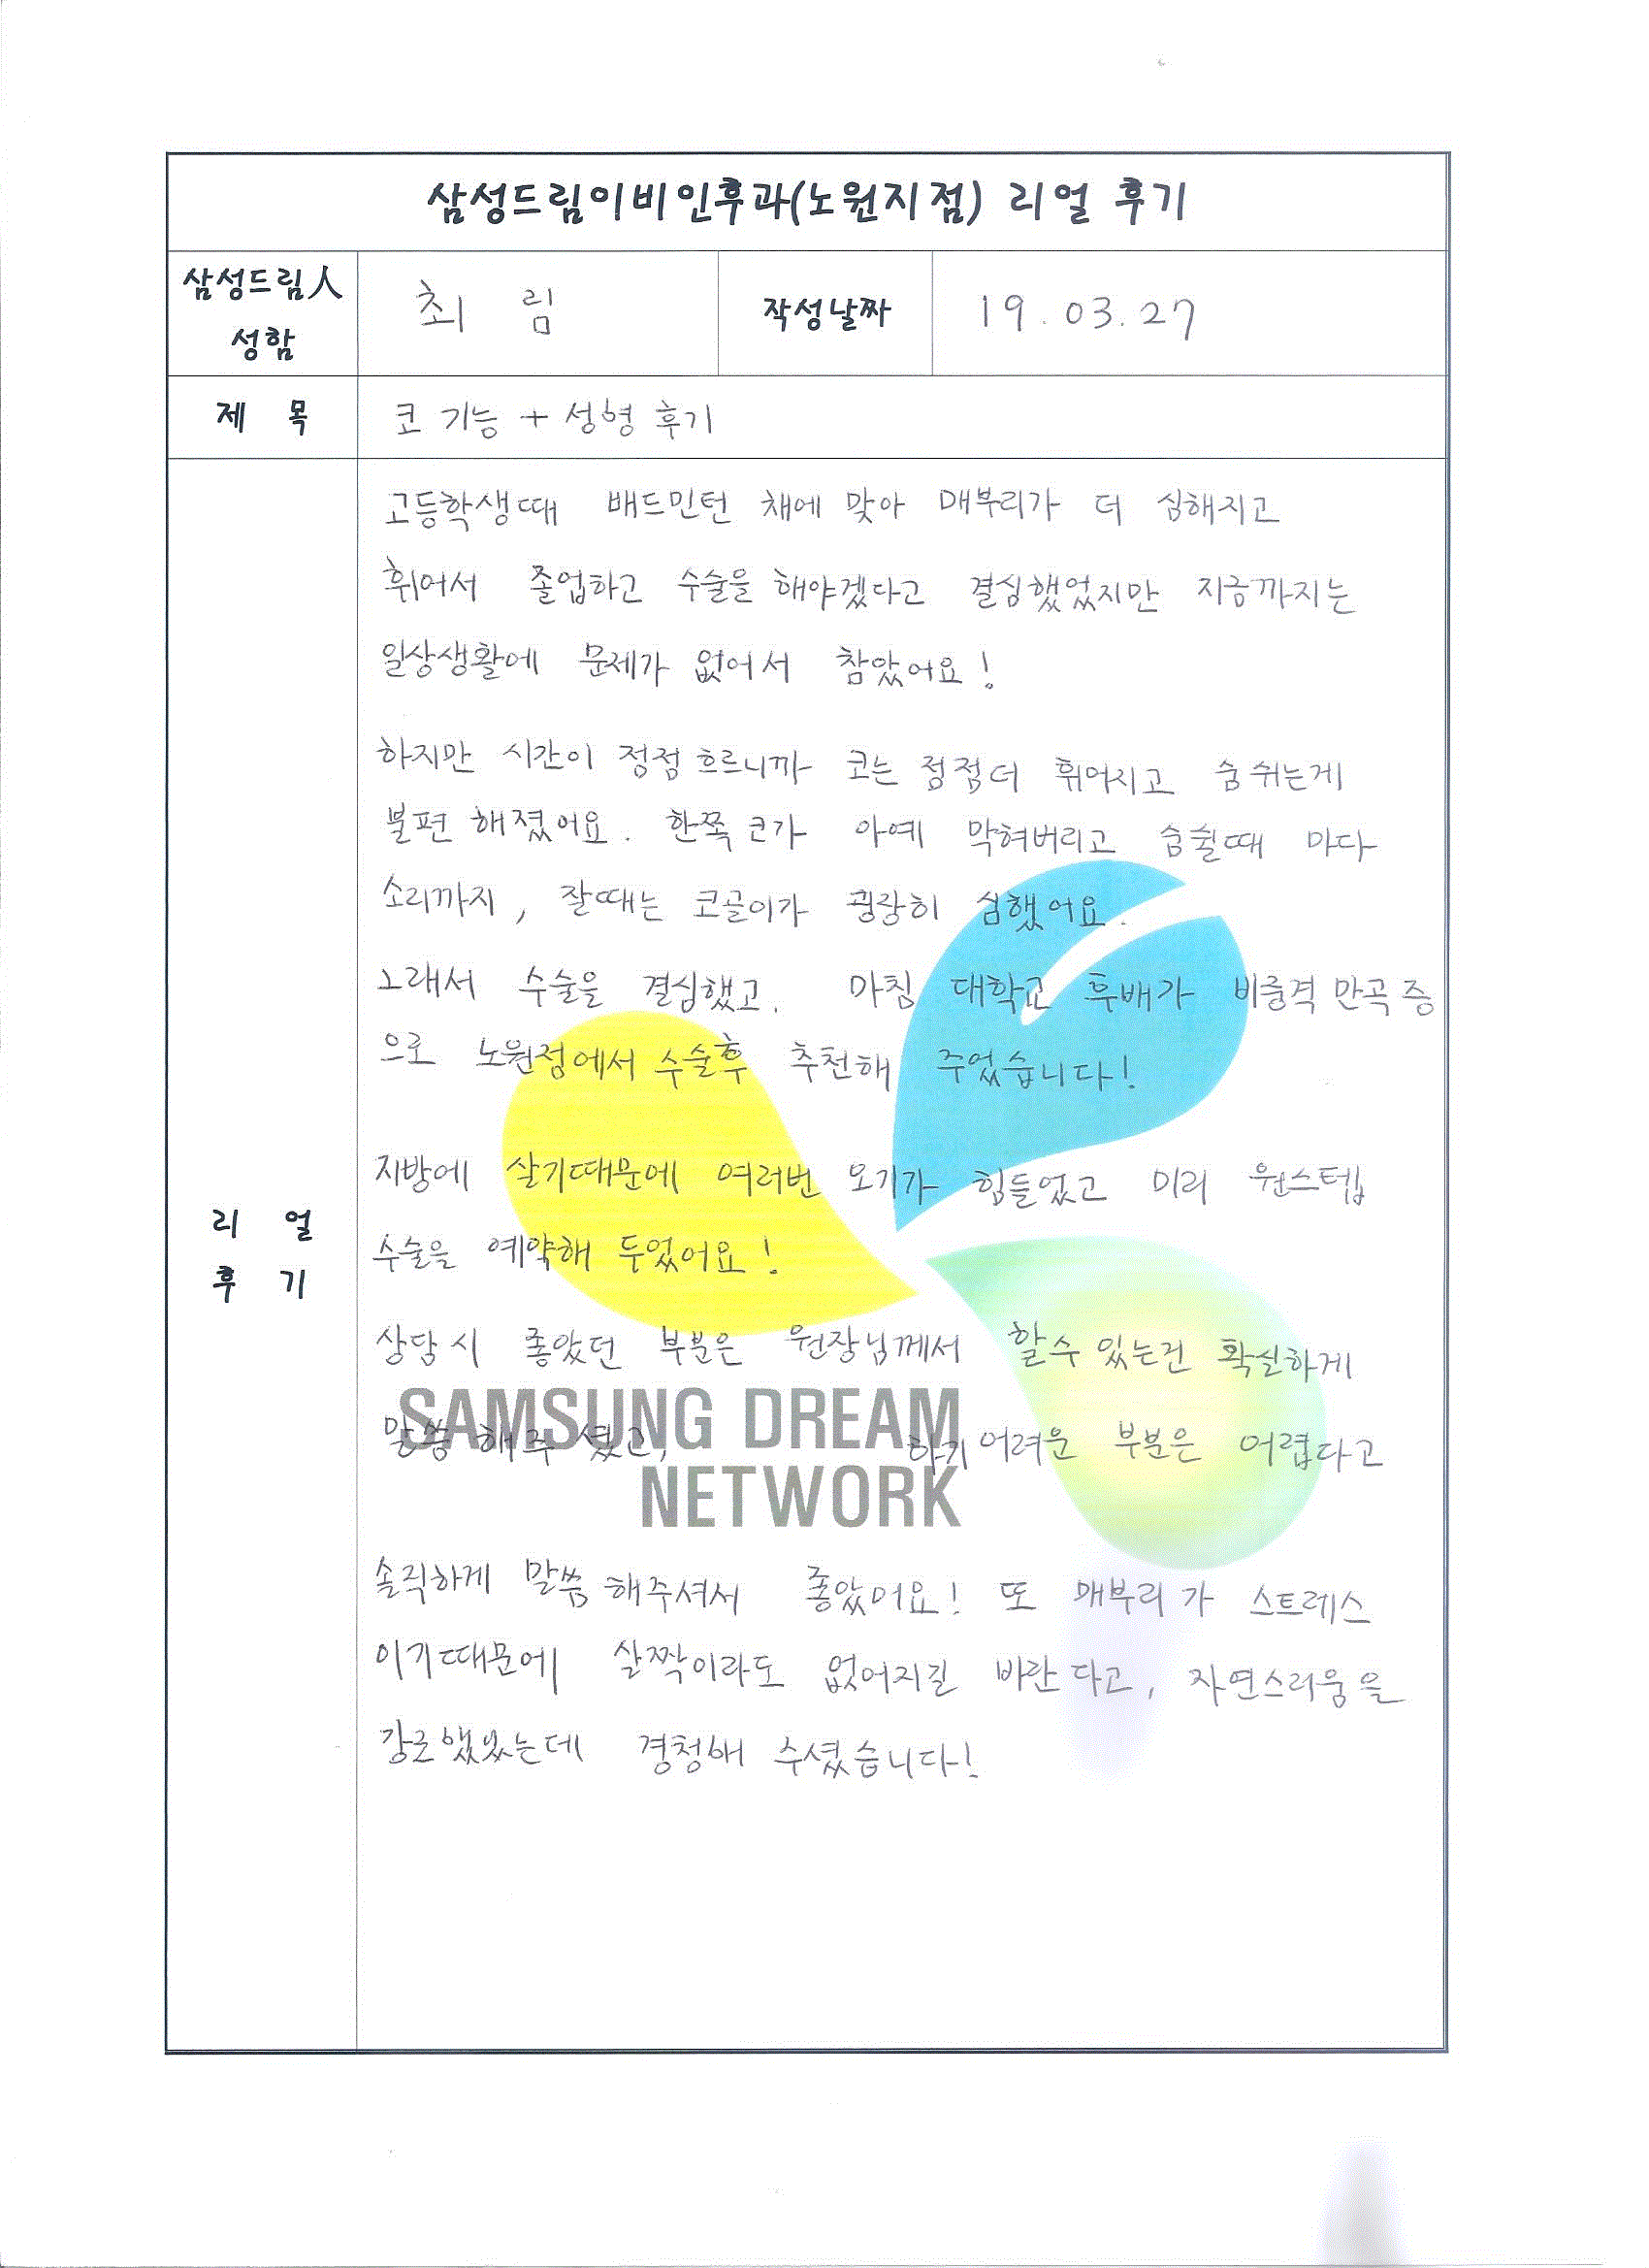 삼성드림이비인후과(노원지점) 리얼 후기
삼성드림人 성함
최 림
작성날짜
19.03.27
제 목
코 기능 + 성형 후기
리 얼 후 기
고등학생때 배드민턴 채에 맞아 매부리가 더 심해지고
휘어서 졸업하고 수술을 해야겠다고 결심했었지만 지금까지는
일상생활에 문제가 없어서 참았어요!
하지만 시간이 점점 흐르니까 코는 점점더 휘어지고 숨쉬는게
불편해졌어요. 한쪽 코가 아예 막혀버리고 숨쉴때 마다
소리까지, 잘때는 코골이가 굉장히 심했어요.
그래서 수술을 결심했고, 마침 대학교 후배가 비중격 만곡증
으로 노원점에서 수술후 추천해 주었습니다!
지방에 살기때문에 여러번 오기가 힘들었고 미리 원스텝
수술을 예약해 두었어요!
상담시 좋았던 부분은 원장님께서 할수 있는건 확실하게
말씀해주셨고, 하기 어려운 부분은 어렵다고
솔직하게 말씀 해주셔서 좋았어요! 또 매부리가 스트레스
이기때문에 살짝이라도 없어지길 바란다고, 자연스러움을
강조했었는데 경청해 주셨습니다!
SAMSUNG DREAM
NETWORK